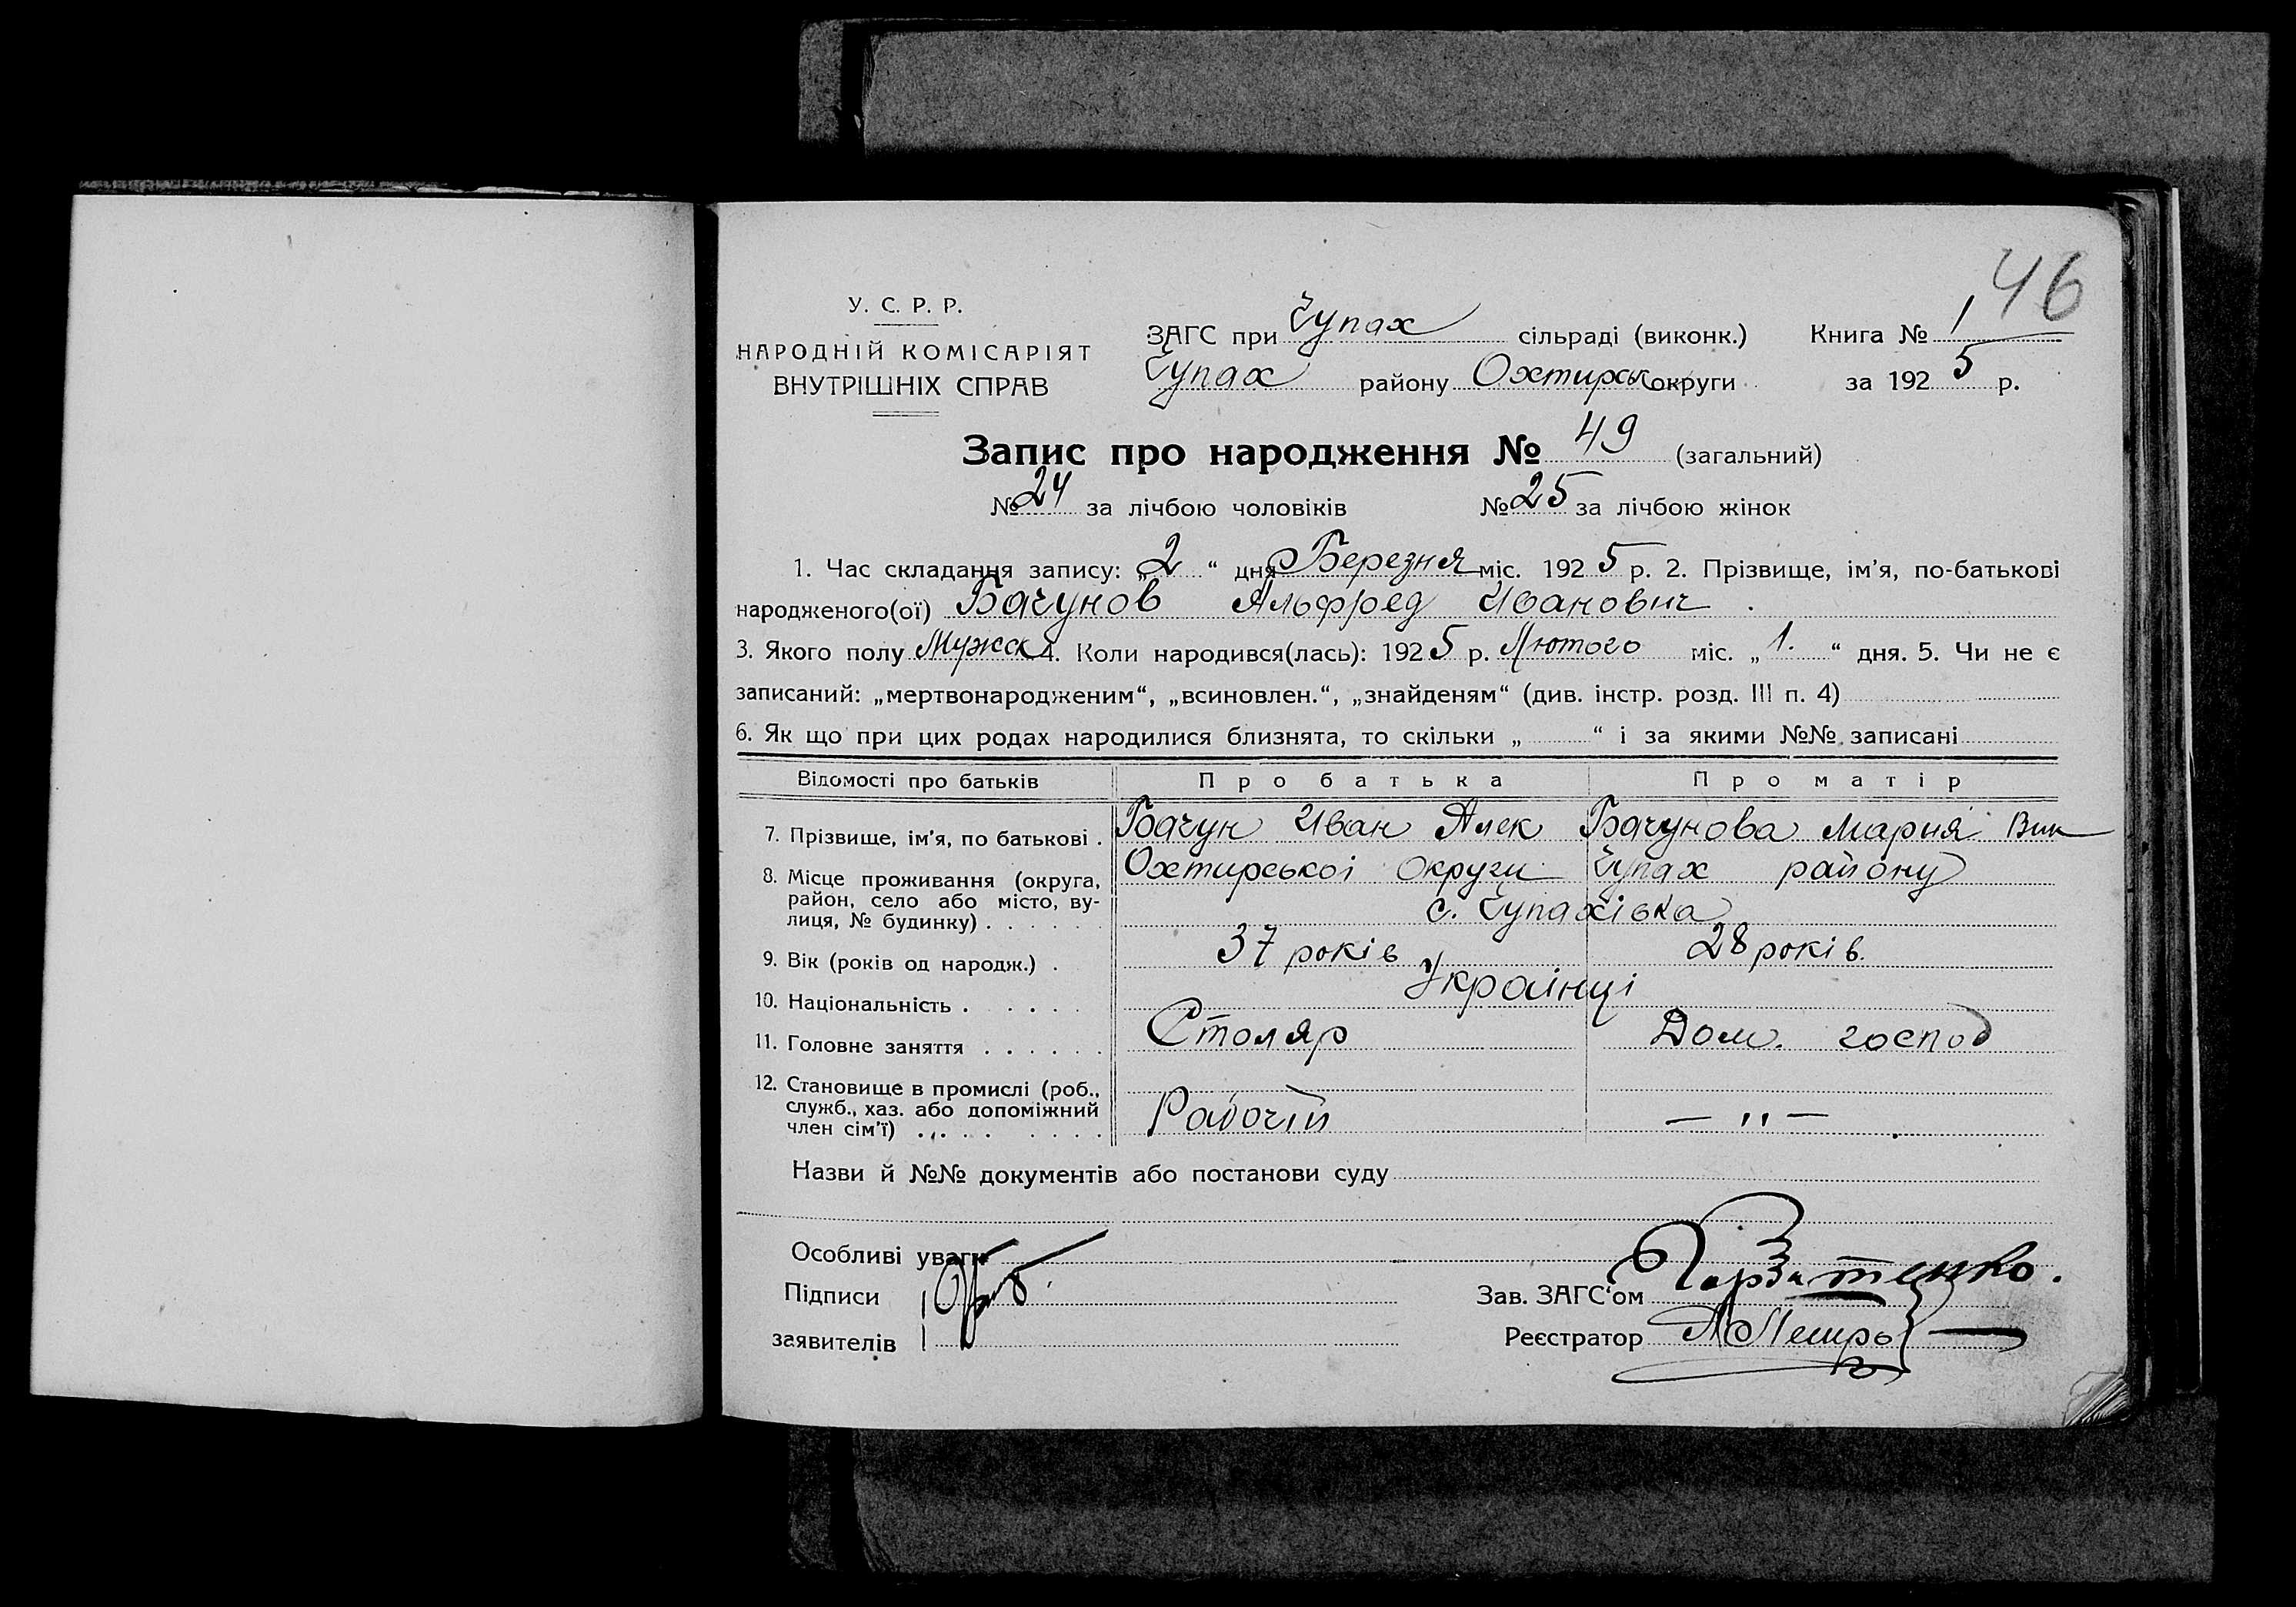 46
У. С. Р. Р.
НАРОДНІЙ КОМІСАРІЯТ
ВНУТРІШНІХ СПРАВ
ЗАГС при Чупах сільраді (виконк.) Книга № 1
Чупах району Охтирськ округи за 1925 р.
Запис про народження № 49 (загальний)
№ 24 за лічбою чоловіків № 25 за лічбою жінок
1. Час складання запису: „2“ дня Березня міс. 1925 р. 2. Прізвище, ім’я, по-батькові
народженого(ої) Бачунов Альфред Иванович
3. Якого полу Мужск 4. Коли народився(лась): 1925 р. Лютого міс. „1.“ дня. 5. Чи не є
записаний: „мертвонародженим“, „всиновлен.“, „знайденям“ (див. інстр. розд. III п. 4)
6. Як що при цих родах народилися близнята, то скільки „ “ і за якими №№ записані
Відомості про батьків Про батька Про матір
7. Прізвище, ім’я, по батькові . Бачун Иван Алек Бачунова Мария Вик
8. Місце проживання (округа, Охтирськоі Округи Чупах району
район, село або місто, ву-
лиця, № будинку) . . . . . . с. Чупахівка
9. Вік (років од народж.) . 37 років 28 років.
10. Національність . . . . . Украінці
11. Головне заняття . . . . . . Столяр Дом. господ
12. Становище в промислі (роб.,
служб., хаз. або допоміжний Рабочій — " —
член сім’ї) . . . . . . . . .
Назви й №№ документів або постанови суду
Особливі уваги
Підписи
заявителів
Зав. ЗАГС‘ом
Реєстратор